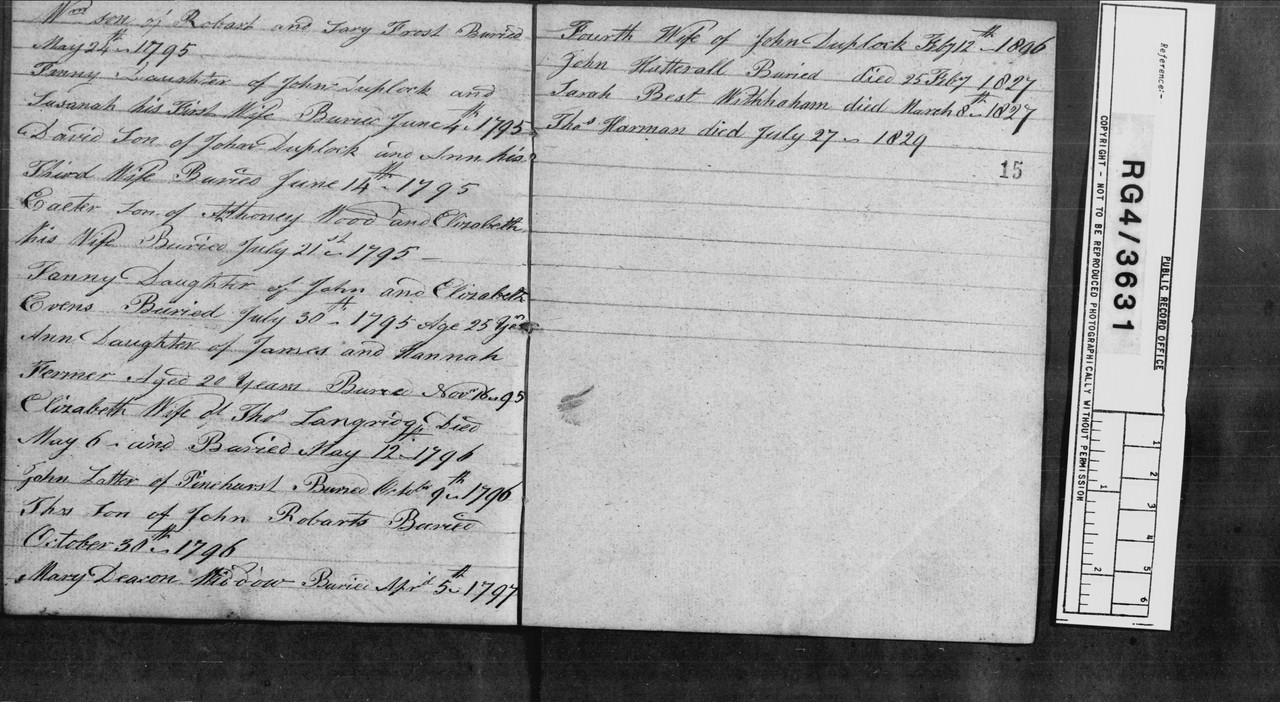 Wm son of Robart and Sary Frost Buried
May 24th 1795
Fanny Daughter of John Duplock and
Susanah his First Wife Buried June 4th 1795
David Son of John Duplock and Ann his
Third Wife Buried June 14th 1795
Son of Athoney Wood and Elizabeth
his Wife Buried July 21st 1795
Fanny Daughter of John and Elizabeth
Evens Buried July 30th 1795 Age 25 Yes
Ann Daughter of James and Hannah
Fermer Aged 20 Years Buried Novr 16 95
Elizabeth Wife of Thos Langridge Died
May 6 and Buried May 12th 1796
John Latter of Pinehurst Buried Octobr 9th 1796
Thos Son of John Robarts Buried
October 30th 1796
Mary Deacon Widdow Buried April 5th 1797
Fourth Wife of John Duplock Feby 12th
John Hutterall Buried died 25 Feby 1827
Sarah Best Withhaham died March 8th 1827
Thos Harman died July 27 1829
15
Reference:-
PUBLIC RECORD OFFICE
RG4/3631
COPYRIGHT - NOT TO BE REPRODUCED PHOTOGRAPHICALLY WITHOUT PERMISSION
1
2
3
4
5
6
1
2